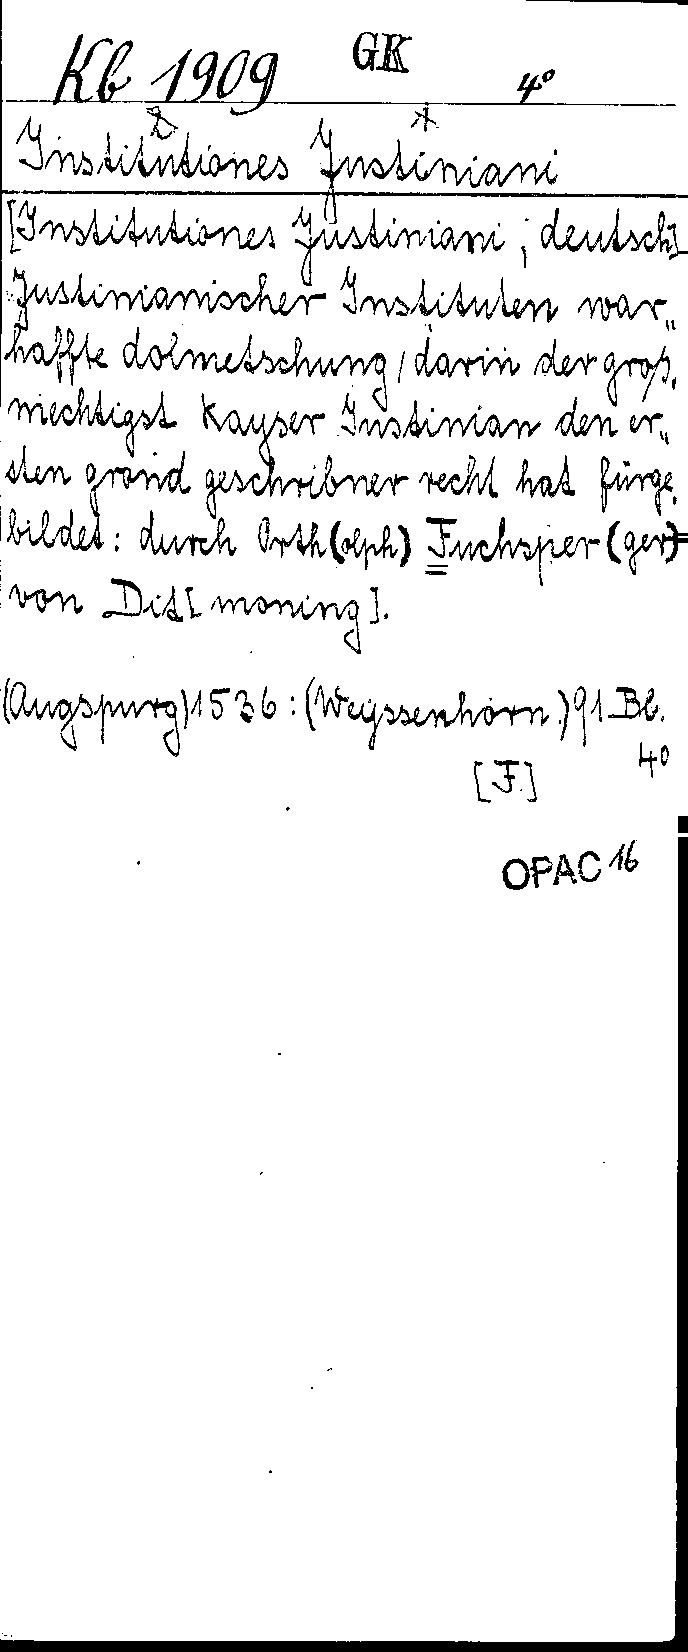 Kb 1909 GK 4°
Institutiones Justiniani
[Institutiones Justiniani, deutsch]
Justinianischer Instituten war„
haffte dolmetschung / darin der groß„
mechtigst Kayser Justinian den er„
sten grand geschribner recht hat fürge„
bildet: durch Orth(olph) Fuchsper(ger)
von Dit[moning].
(Augspurg) 1536: (Weyssenhorn.) 91 Bl.
4°
[F.]
OPAC 16